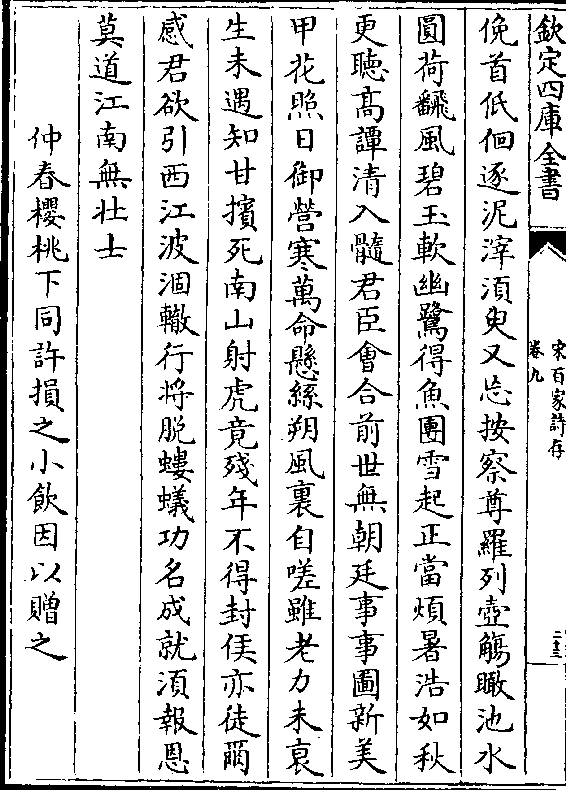 欽定四庫全書
宋百家詩存
卷九
二十三
俛首低佪逐泥滓湏臾又忘按察尊羅列壺觴瞰池水
圓荷翻風碧玉軟幽鷺得魚團雪起正當煩暑浩如秋
更聴髙譚清入髓君臣㑹合前世無朝廷事事圖新美
甲花照日御營寒萬命懸絲朔風裏自嗟雖老力未衰
生未遇知甘擯死南山射虎竟殘年不得封侯亦徒爾
感君欲引西江波涸轍行将脱螻蟻功名成就湏報恩
莫道江南無壮士
仲春櫻桃下同許損之小飲因以贈之